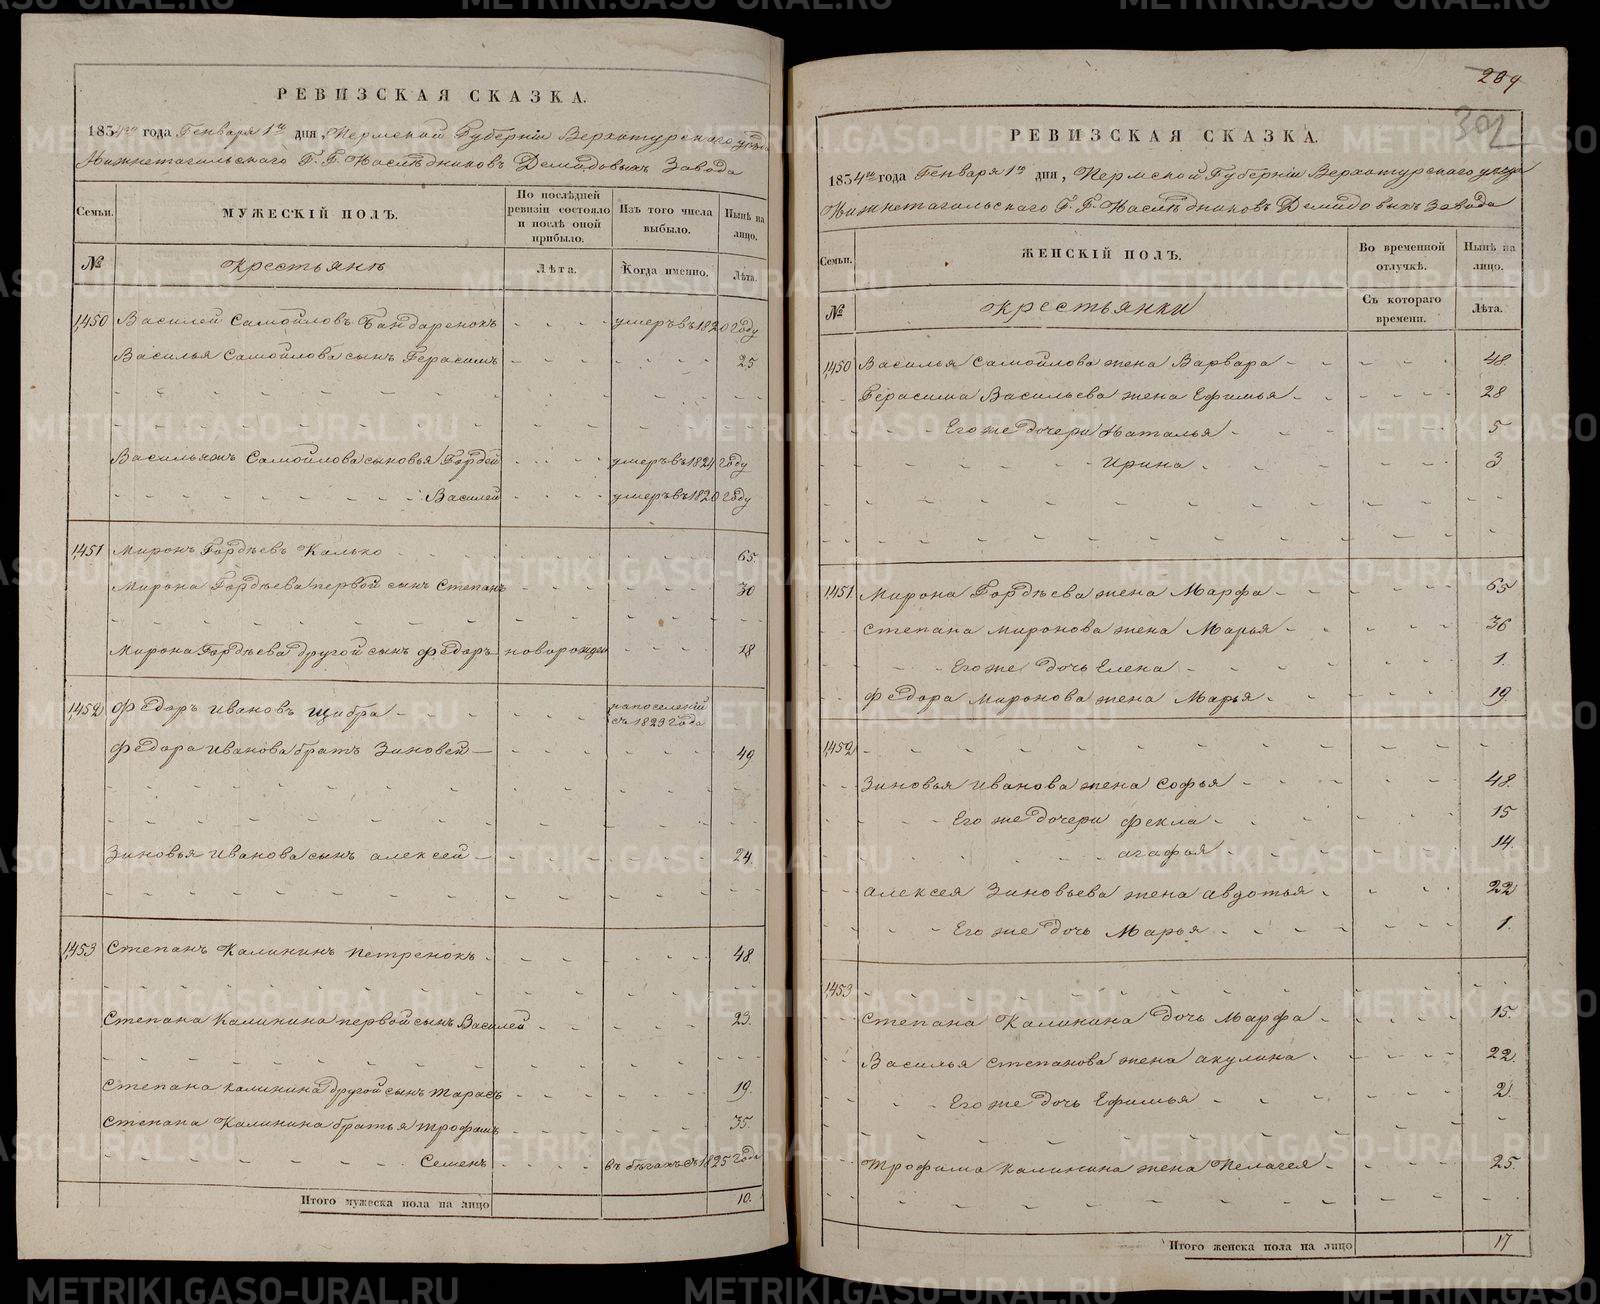 РЕВИЗСКАЯ СКАЗКА.
1834го года Генваря 1го дня, Пермской Губерніи Верхотурскаго уѣзда
Нижнетагильскаго Г. Г. Наслѣдниковъ Демидовыхъ Завода
Семьи. МУЖЕСКІЙ ПОЛЪ. По послѣдней ревизіи состояло и послѣ оной прибыло. Изъ того числа выбыло. Нынѣ на лицо.
№ Крестьянъ Лѣта. Когда именно. Лѣта.
1,450 Василей Самойловъ Бандаренокъ умеръ въ 1820 году
Василья Самойлова сынъ Герасимъ 25
Васильяжъ Самойлова сыновья Гордей умеръ въ 1824 году
Василей умеръ въ 1820 году
1,451 Миронъ Гордѣевъ Калько 65.
Мирона Гордѣева первой сынъ Степанъ 30
Мирона Гордѣева другой сынъ Федоръ новорожден 18
1,452 Федоръ Ивановъ Щибра напоселеніи съ 1829 года
Федора Иванова братъ Зиновей 49
Зиновья Иванова сынъ Алексей 24.
1,453 Степанъ Калининъ Петренокъ 48.
Степана Калинина первой сынъ Василей 23.
Степана Калинина другой сынъ Тарасъ 19.
Степана Калинина братья Трофимъ 35.
Семенъ въ бѣгахъ съ 1825 года
Итого мужеска пола на лицо 10.
209
302
РЕВИЗСКАЯ СКАЗКА.
1834го года Генваря 1го дня, Пермской Губерніи Верхотурскаго уѣзда
Нижнетагильскаго Г. Г. Наслѣдниковъ Демидовыхъ Завода
Семьи. ЖЕНСКІЙ ПОЛЪ. Во временной отлучкѣ. Нынѣ на лицо.
№ Крестьянки Съ котораго времени. Лѣта.
1,450 Василья Самойлова жена Варвара 48.
Герасима Васильева жена Ефимья 28
Его же дочери Наталья 5
Ирина 3
1,451. Мирона Гордѣева жена Марфа 65
Степана Миронова жена Марья 36
Его же дочь Елена 1.
Федора Миронова жена Марья 19.
1,452
Зиновья Иванова жена Софья 48.
Его же дочери Фекла 15
Агафья 14.
Алексея Зиновьева жена Авдотья 22
Его же дочь Марья 1.
1,453
Степана Калинина дочь Марфа 15.
Василья Степанова жена Акулина 22.
Его же дочь Ефимья 2.
Трофима Калинина жена Пелагея 25.
Итого женска пола на лицо 17
METRIKI.GASO-URAL.RU